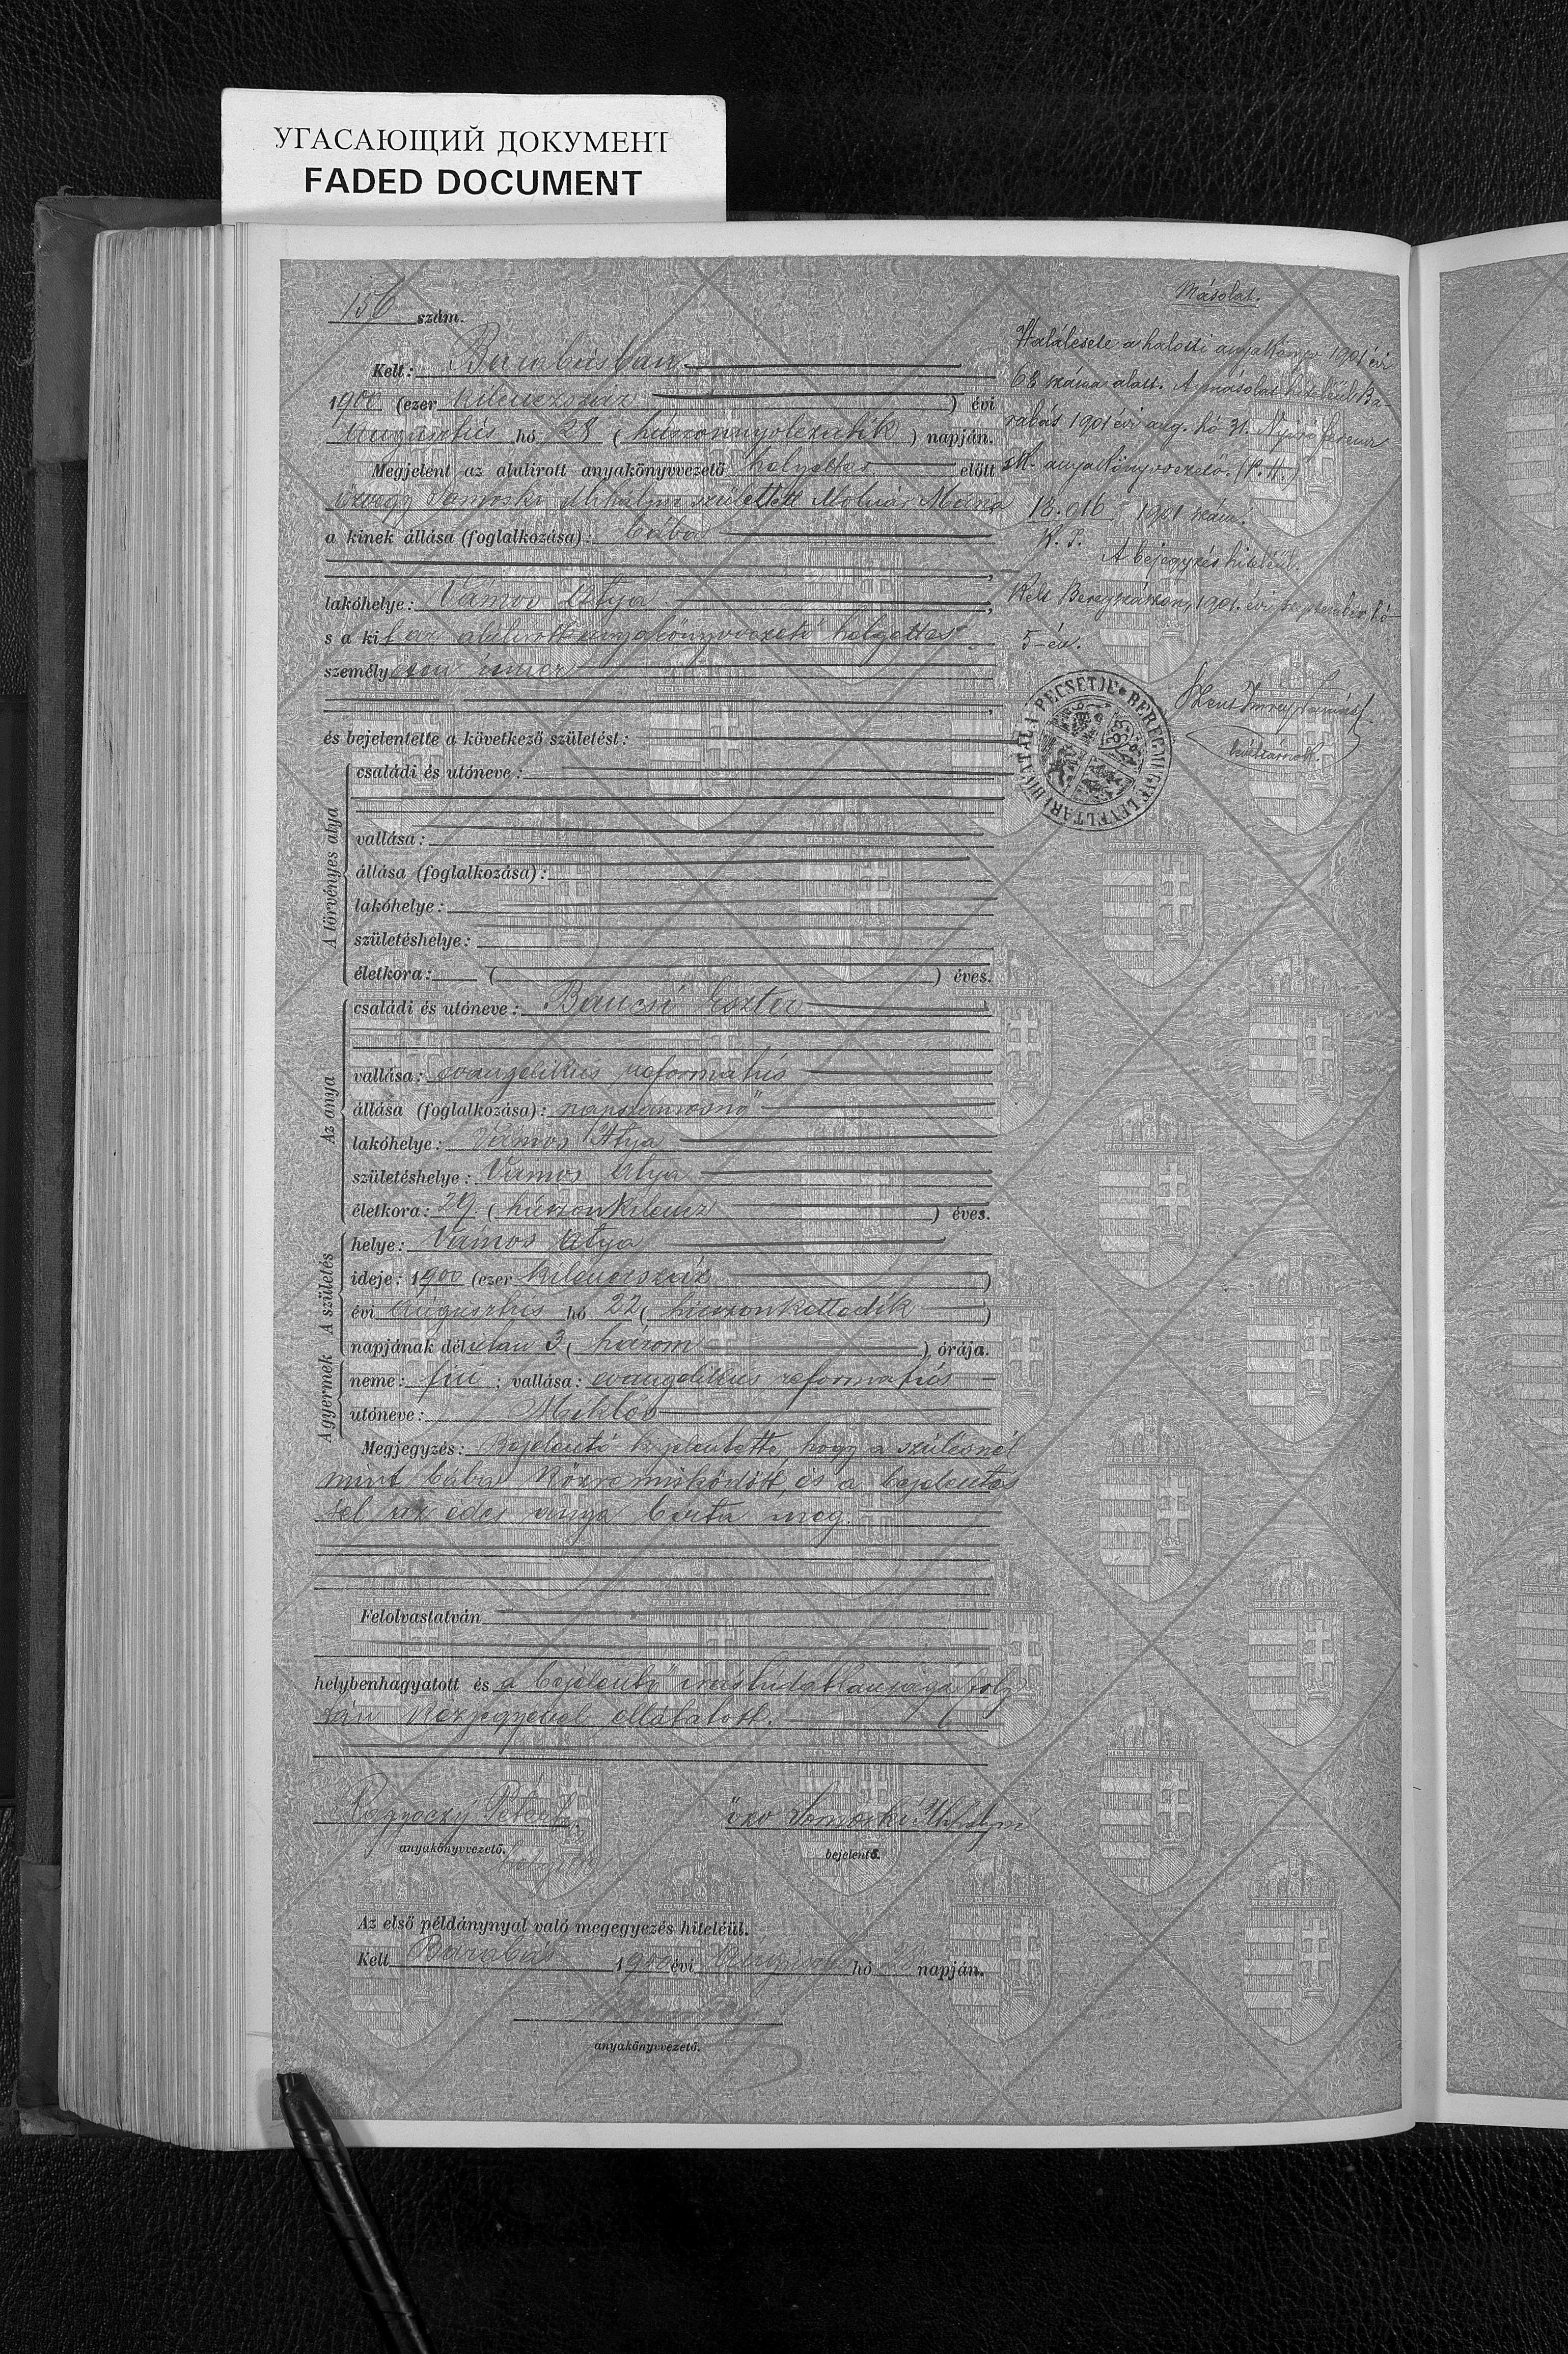 УГАСАЮЩИЙ ДОКУМЕНТ
FADED DOCUMENT
156 szám.
Kelt: Barabásban
1900 (ezer kilenczszáz) évi
Augusztus hó 28 (huszonnyolczadik) napján.
Megjelent az alulirott anyakönyvvezető helyettes előtt
özvegy Mihályné született Molnár Mária
a kinek állása (foglalkozása): bába
lakóhelye: Vámos Atya
s a kit az alulirott anyakönyvvezető helyettes
személyesen ismer
és bejelentette a következő születést:
A törvényes atya
családi és utóneve:
vallása:
állása (foglalkozása):
lakóhelye:
születéshelye:
életkora: ( ) éves.
Az anya
családi és utóneve: Eszter
vallása: evangelikus református
állása (foglalkozása): napszámosnő
lakóhelye: Vámos Atya
születéshelye: Vámos Atya
életkora: 29 (huszonkilencz) éves.
A születés
helye: Vámos Atya
ideje: 1900 (ezer kilenczszáz)
évi Augusztus hó 22 (huszonkettedik)
napjának délután 3 (három) órája.
A gyermek
neme: fiú; vallása: evangelikus református
utóneve: Miklós
Megjegyzés: Bejelentő kijelentette, hogy a szülésnél
mint bába közreműködött, és a bejelentés
sel az édes anya bízta meg.
Felolvastatván
helybenhagyatott és a bejelentő irástudatlansága foly
tán kézjegyével ellátatott.
Péter
anyakönyvvezető.
helyettes
özv Mihályné
bejelentő.
Az első példánynyal való megegyezés hiteléül.
Kelt Barabás 1900 évi Augusztus hó 28 napján.
anyakönyvvezető.
Másolat.
Halálesete a halotti anyakönyv 1901 évi
68 száma alatt. A másolat hiteléül Ba
rabás 1901 évi aug. hó 31. Ferencz
sk. anyakönyvvezető. (P.H.)
18.016 1901 szám.
A bejegyzés hiteléül.
Kelt Beregszászon, 1901. évi szeptember hó
5-én.